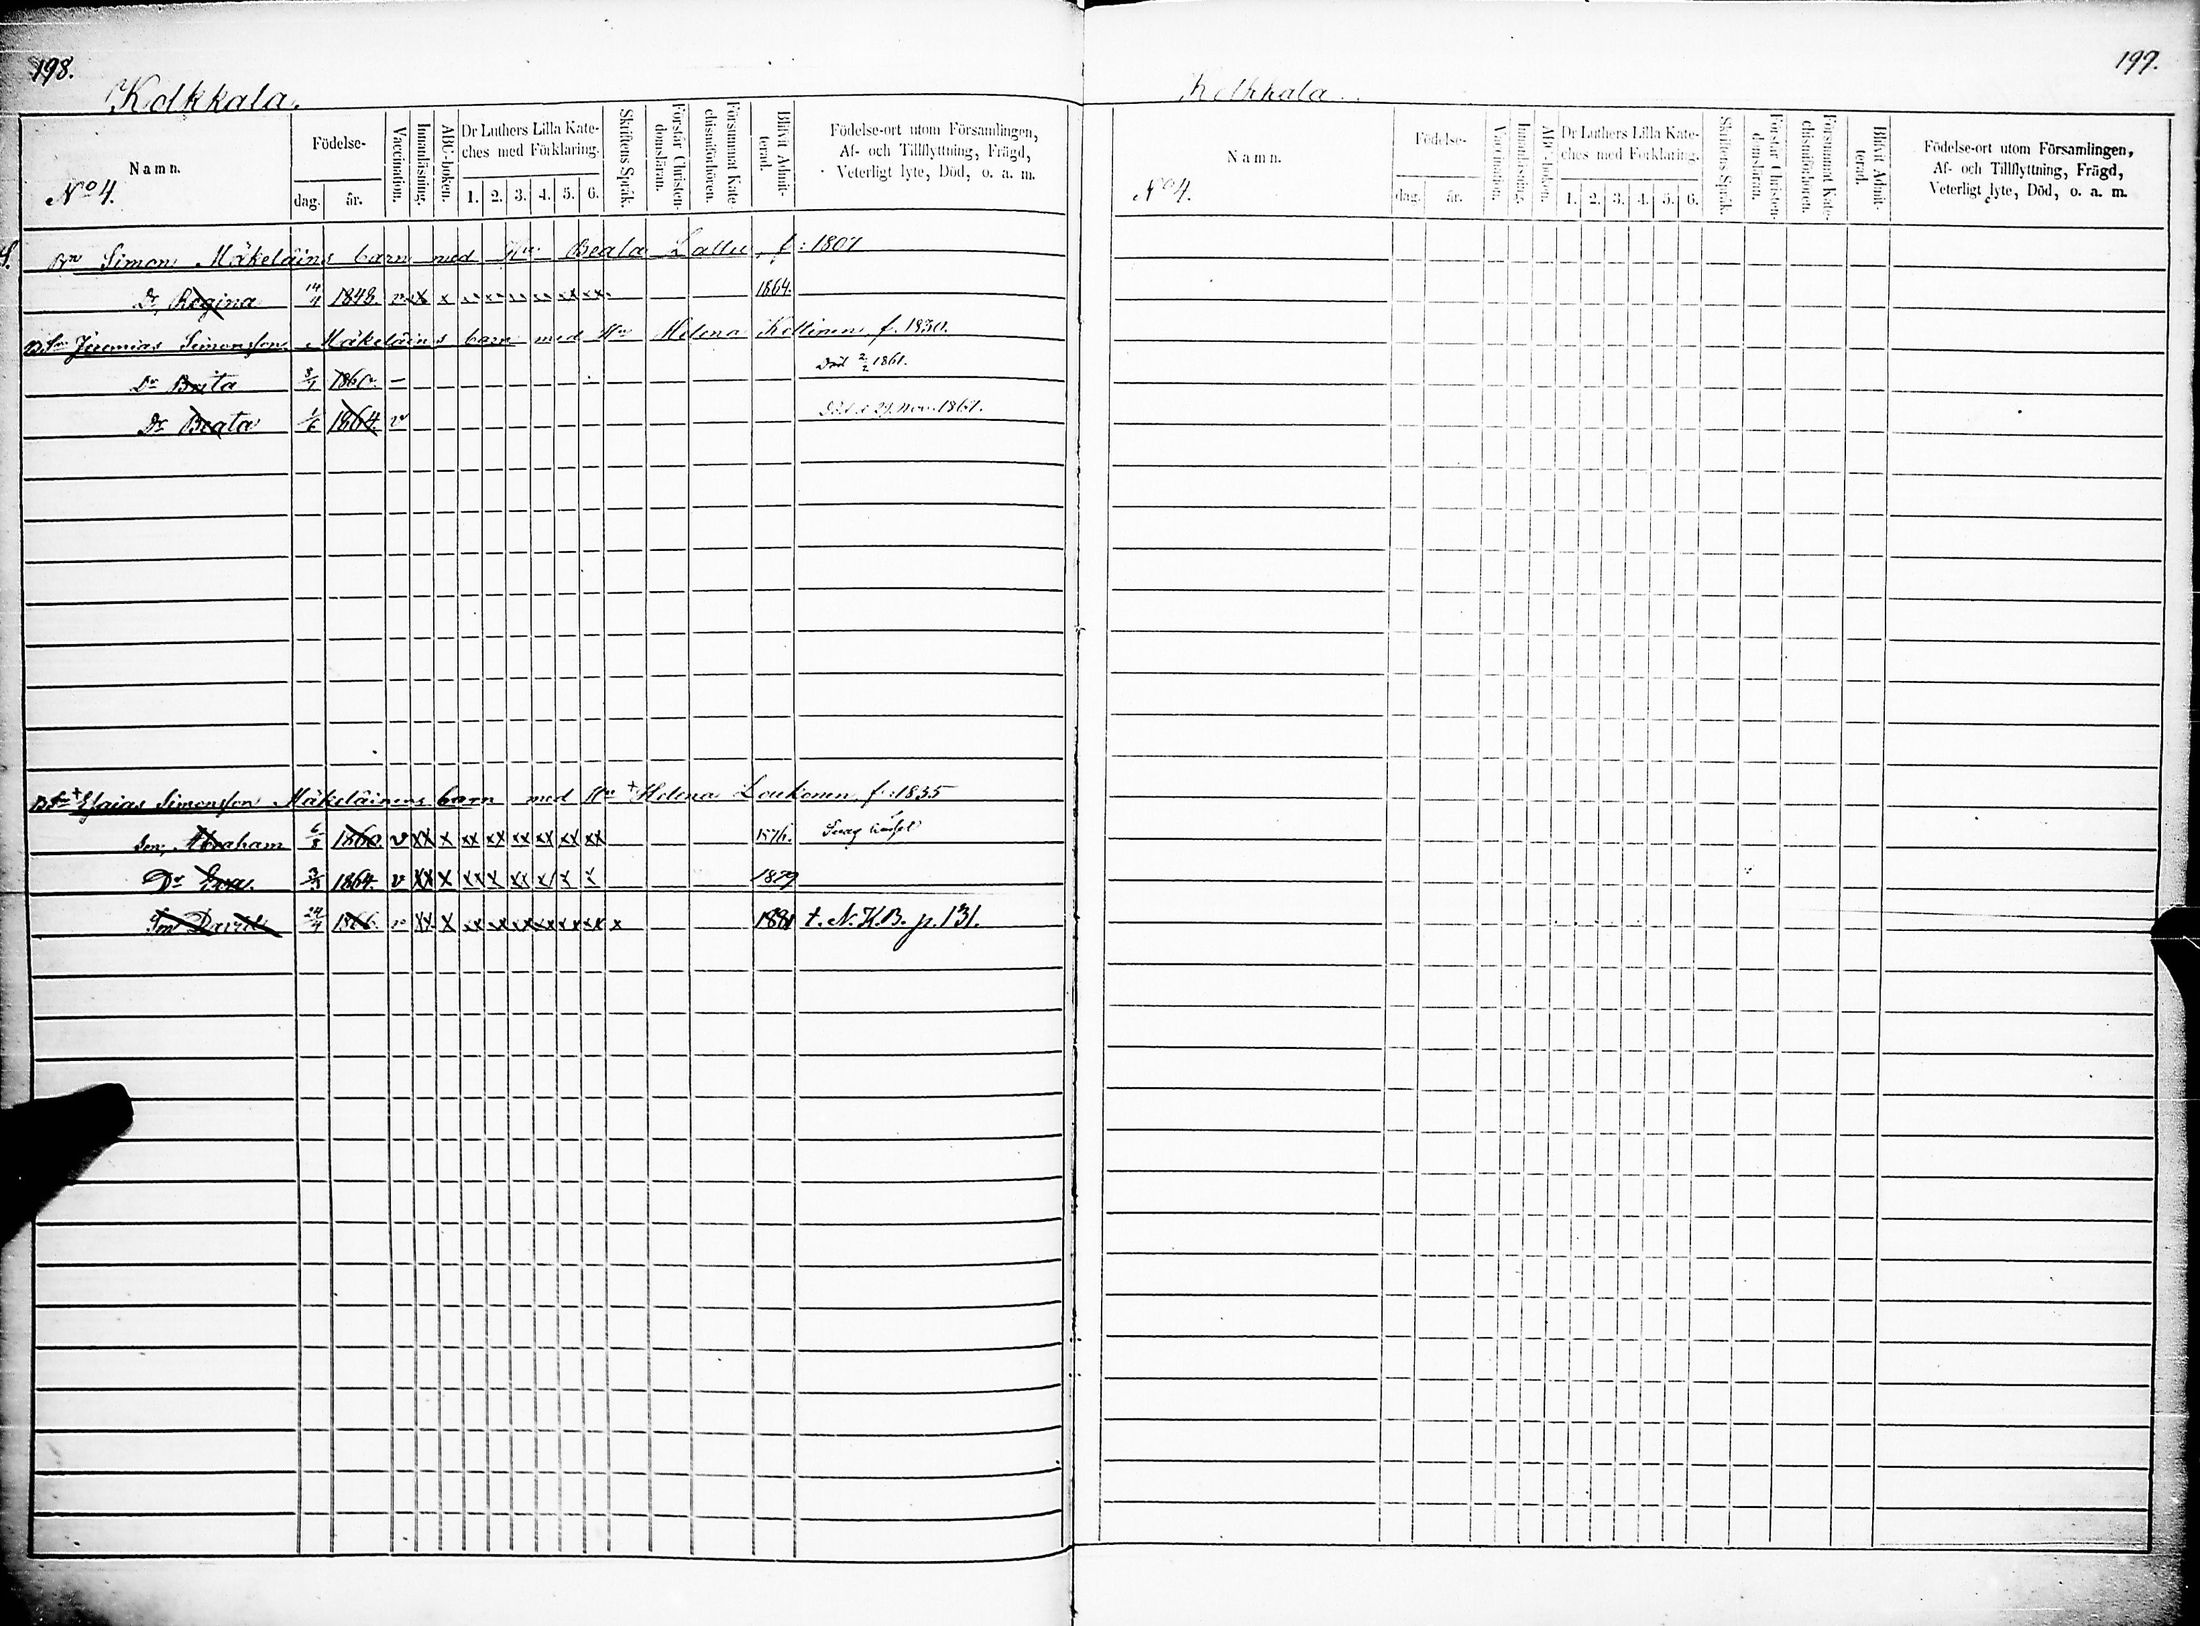 198.
Kolkkala.
Namn.
No 4.
Födelse-
dag.
år.
Vaccination.
Innanläsning.
ABC-boken.
Dr Luthers Lilla Kate-
ches med Förklaring.
1. 2. 3. 4. 5. 6.
Skriftens Språk.
Förstår Christen-
domsläran.
Försummat Kate-
chismiförhören.
Blifvit Admit-
terad.
Födelse-ort utom Församlingen,
Af- och Tillflyttning, Frägd,
Veterligt lyte, Död, o. a. m.
Bn Simon Mäkeläins barn med Hu Beata Lallu, f: 1807
Dr Regina 14/4 1848 v x x 1864.
BSn Jeremias Simonsson Mäkeläins barn med Hu Helena f. 1830.
Dr Brita 8/1 1860. — Död 2/2 1861.
Dr Beata 1/6 1864 v Död d 29. Nov. 1867.
BSn + Esaias Simonsson Mäkeläinens barn med Hu + Helena Loukonen f: 1835
Son, Abraham 6/8 1860 v xx x xx xx xx xx xx xx 1876. Svag
Dr Eva. 1864. v xx x xx x xx x x x 1879
Son David 24/4 1866. v xx x xx xx xx xx xx xx x 1881 t. N. K. B. p. 131.
199.
Kolkkala.
Namn.
No 4.
Födelse-
dag.
år.
Vaccination.
Innanläsning.
ABC-boken.
Dr Luthers Lilla Kate-
ches med Förklaring.
1. 2. 3. 4. 5. 6.
Skriftens Språk.
Förstår Christen-
domsläran.
Försummat Kate-
chismiförhören.
Blifvit Admit-
terad.
Födelse-ort utom Församlingen,
Af- och Tillflyttning, Frägd,
Veterligt lyte, Död, o. a. m.